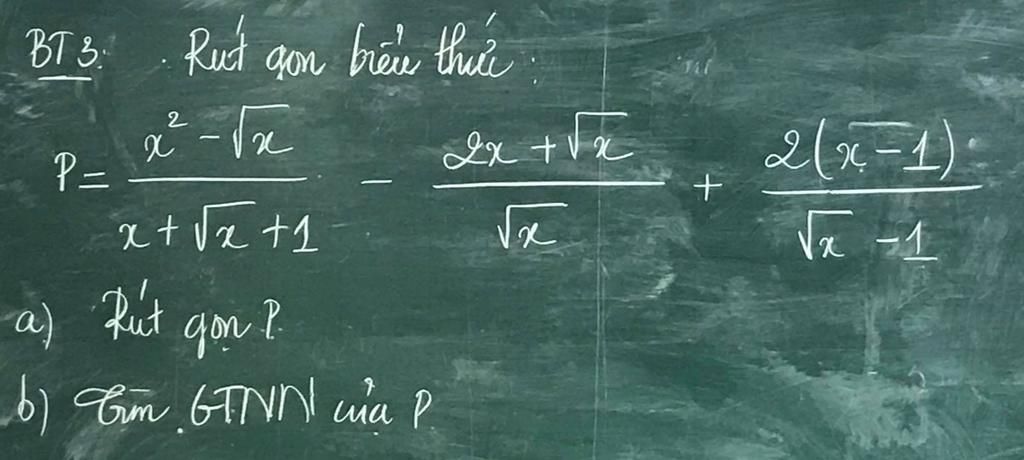 BT3: Rút gọn biểu thức:
P = \frac{x^2 - \sqrt{x}}{x + \sqrt{x} + 1} - \frac{2x + \sqrt{x}}{\sqrt{x}} + \frac{2(x - 1)}{\sqrt{x} - 1}
a) Rút gọn P.
b) Tìm GTNN của P